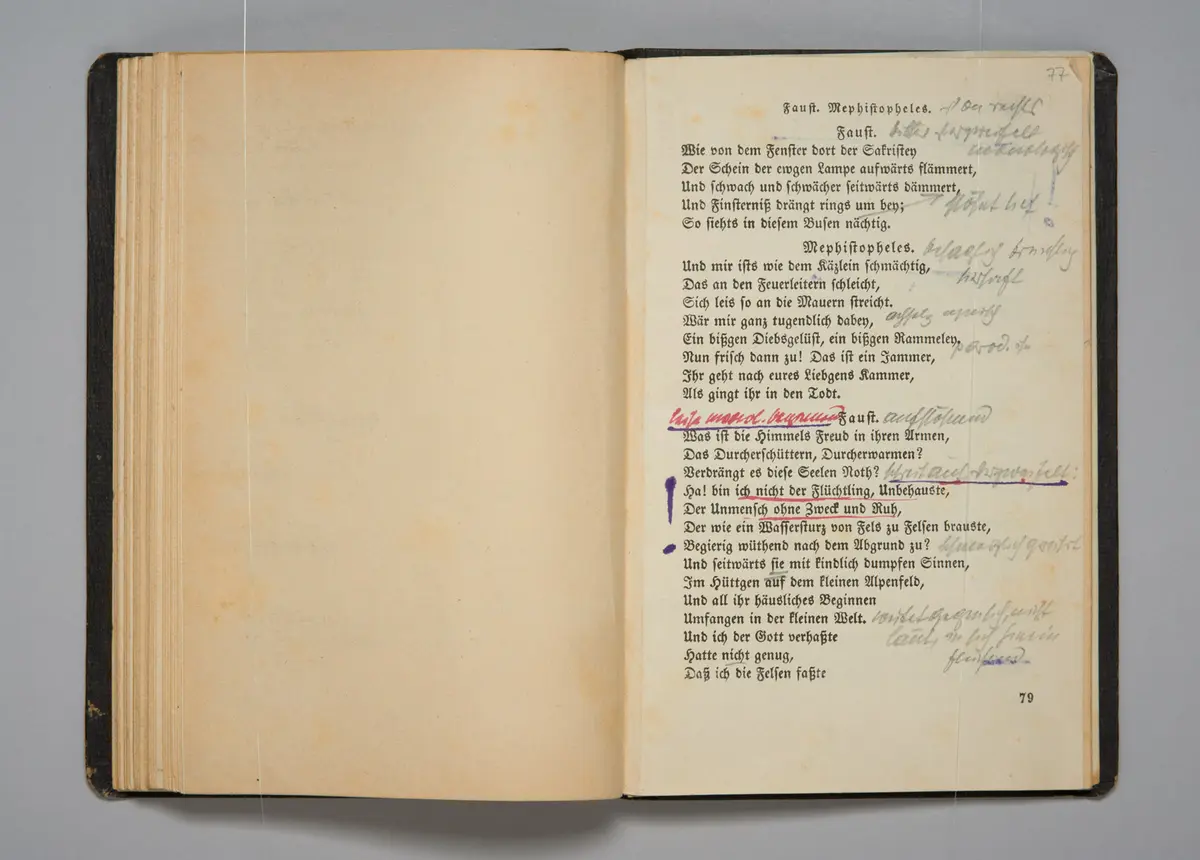 77
Faust. Mephistopheles. von rechts
Faust. bitter verzweifelt
Wie von dem Fenster dort der Sakristey
Der Schein der ewgen Lampe aufwärts flämmert,
Und schwach und schwächer seitwärts dämmert,
Und Finsterniß drängt rings um bey;
So siehts in diesem Busen nächtig.
Mephistopheles.
Und mir ists wie dem Käzlein schmächtig,
Das an den Feuerleitern schleicht,
Sich leis so an die Mauern streicht.
Wär mir ganz tugendlich dabey,
Ein bißgen Diebsgelüst, ein bißgen Rammeley.
Nun frisch dann zu! Das ist ein Jammer,
Ihr geht nach eures Liebgens Kammer,
Als gingt ihr in den Todt.
Faust. aufstöhnend
Was ist die Himmels Freud in ihren Armen,
Das Durcherschüttern, Durcherwarmen?
Verdrängt es diese Seelen Noth? schreit auf verzweifelt:
Ha! bin ich nicht der Flüchtling, Unbehauste,
Der Unmensch ohne Zweck und Ruh,
Der wie ein Wassersturz von Fels zu Felsen brauste,
Begierig wüthend nach dem Abgrund zu?
Und seitwärts sie mit kindlich dumpfen Sinnen,
Im Hüttgen auf dem kleinen Alpenfeld,
Und all ihr häusliches Beginnen
Umfangen in der kleinen Welt. wütet gegen sich, nicht
Und ich der Gott verhaßte laut, in sich hinein
Hatte nicht genug,
Daß ich die Felsen faßte
79